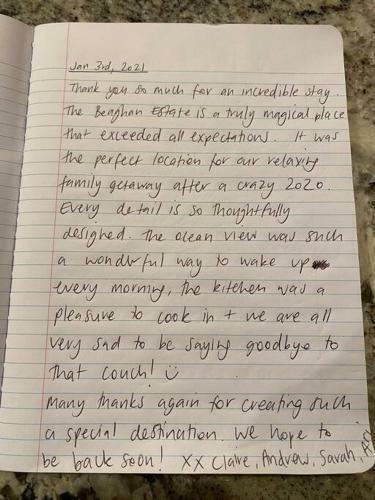 Jan 3rd, 2021
Thank you so much for an incredible stay.
The Beaghan Estate is a truly magical place
that exceeded all expectations. It was
the perfect location for our relaxing
family getaway after a crazy 2020.
Every detail is so thoughtfully
designed. The ocean view was such
a wonderful way to wake up
every morning, the kitchen was a
pleasure to cook in + we are all
very sad to be saying goodbye to
that couch! ☺
Many thanks again for creating such
a special destination. We hope to
be back soon! XX Claire, Andrew, Sarah,